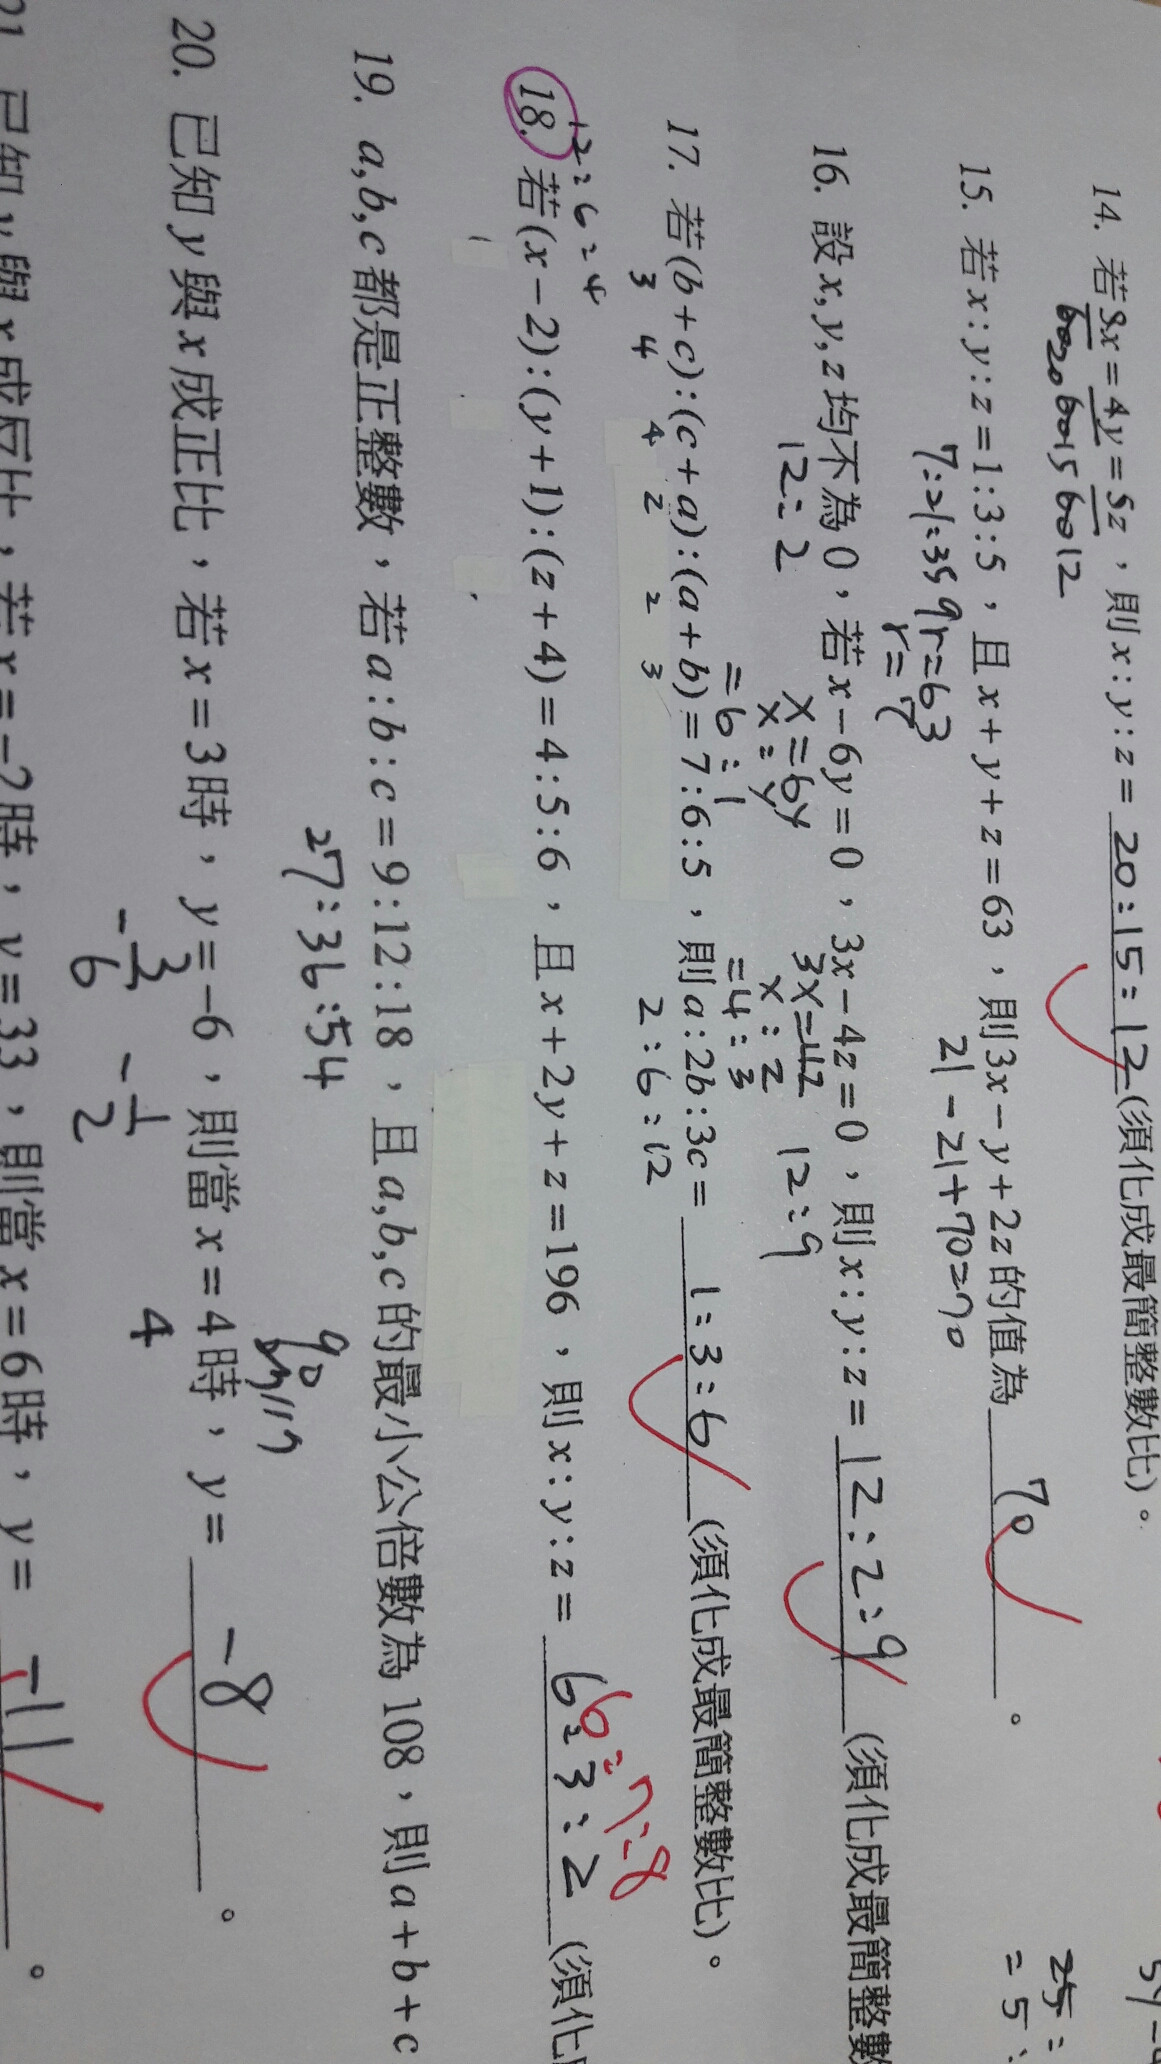 14. 若3x=4y=5z，則x:y:z= 20:15:12 (須化成最簡整數比)。
6020 6015 6012
15. 若x:y:z=1:3:5，且x+y+z=63，則3x-y+2z的值為 70 。
7:21:35 9r=63
r=7
21-21+70=70
16. 設x,y,z均不為0，若x-6y=0，3x-4z=0，則x:y:z= 12:2:9 (須化成最簡整數
12:2
x=6y
x:y
=6:1
3x=4z
x:z
=4:3
12:9
17. 若(b+c):(c+a):(a+b)=7:6:5，則a:2b:3c= 1:3:6 (須化成最簡整數比)。
3 4 4 2 2 3
2:6:12
12:6:4
18. 若(x-2):(y+1):(z+4)=4:5:6，且x+2y+z=196，則x:y:z= 6:3:2 (須化
6:7:8
19. a,b,c都是正整數，若a:b:c=9:12:18，且a,b,c的最小公倍數為108，則a+b+c
27:36:54
90
117
20. 已知y與x成正比，若x=3時，y=-6，則當x=4時，y= -8 。
-3/6 -1/2
4
21. 已知y與x成反比，若x=-2時，y=33，則當x=6時，y= -11 。
25:
=5: